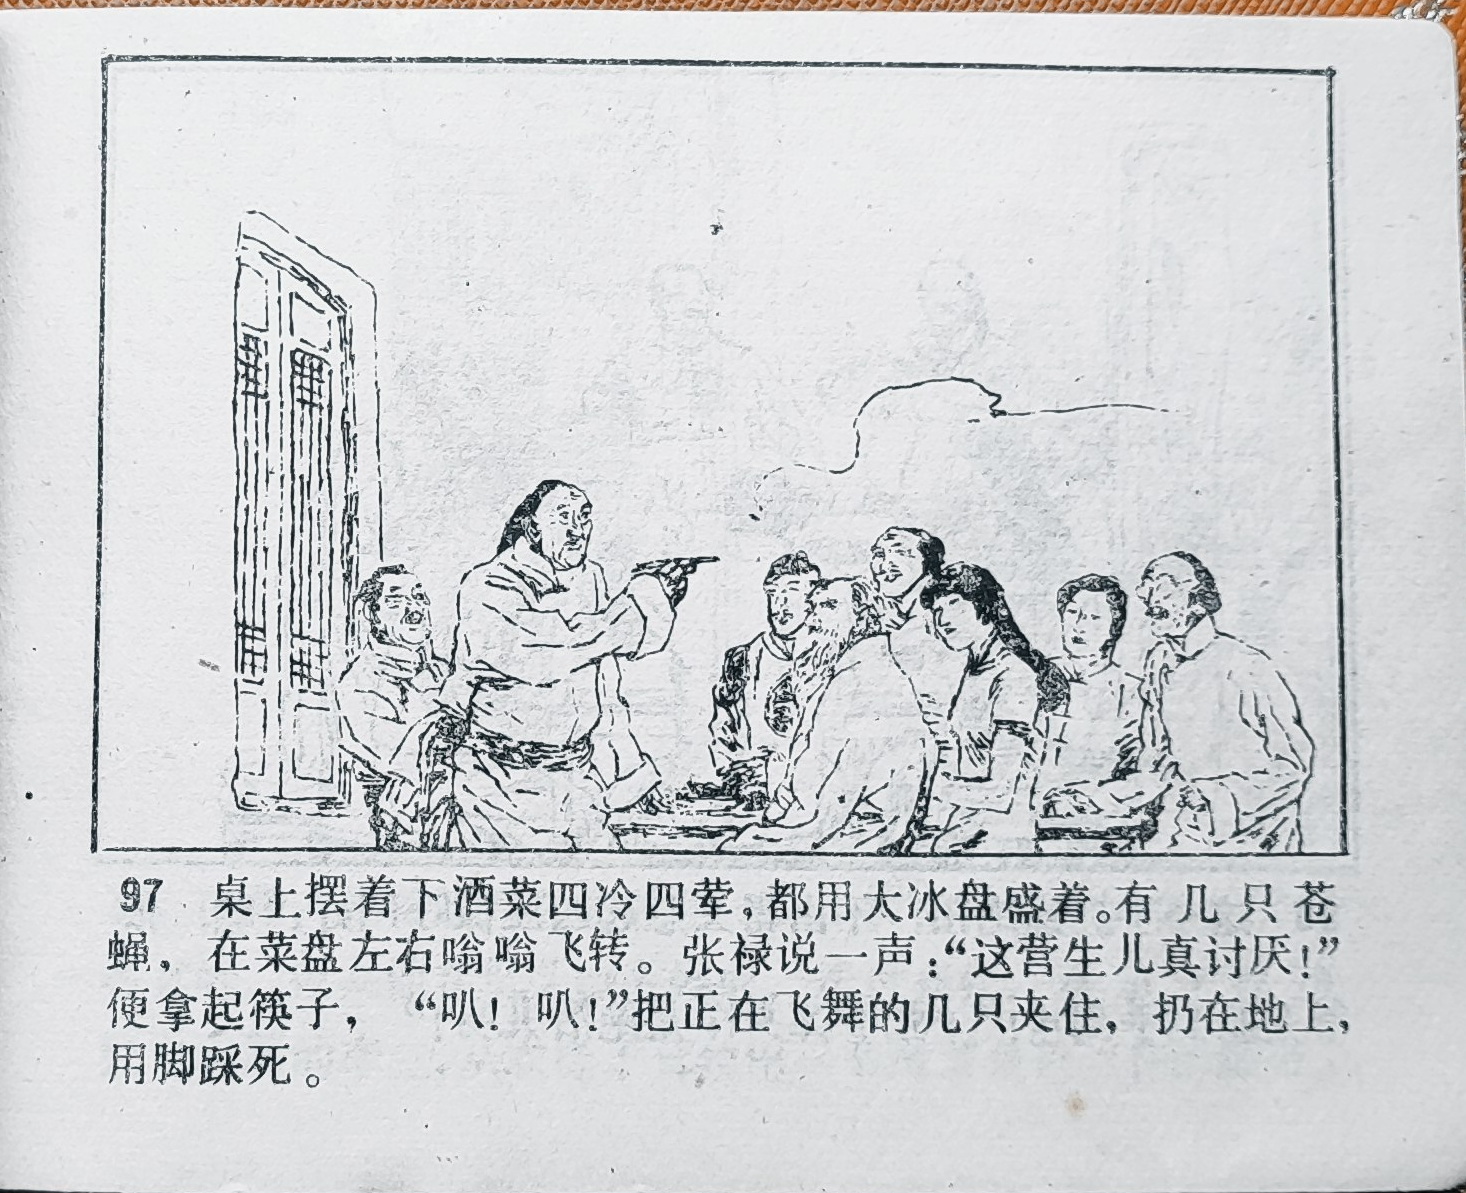 97 桌上摆着下酒菜四冷四荤，都用大冰盘盛着。有几只苍
蝇，在菜盘左右嗡嗡飞转。张禄说一声：“这营生儿真讨厌！”
便拿起筷子，“叭！叭！”把正在飞舞的几只夹住，扔在地上，
用脚踩死。